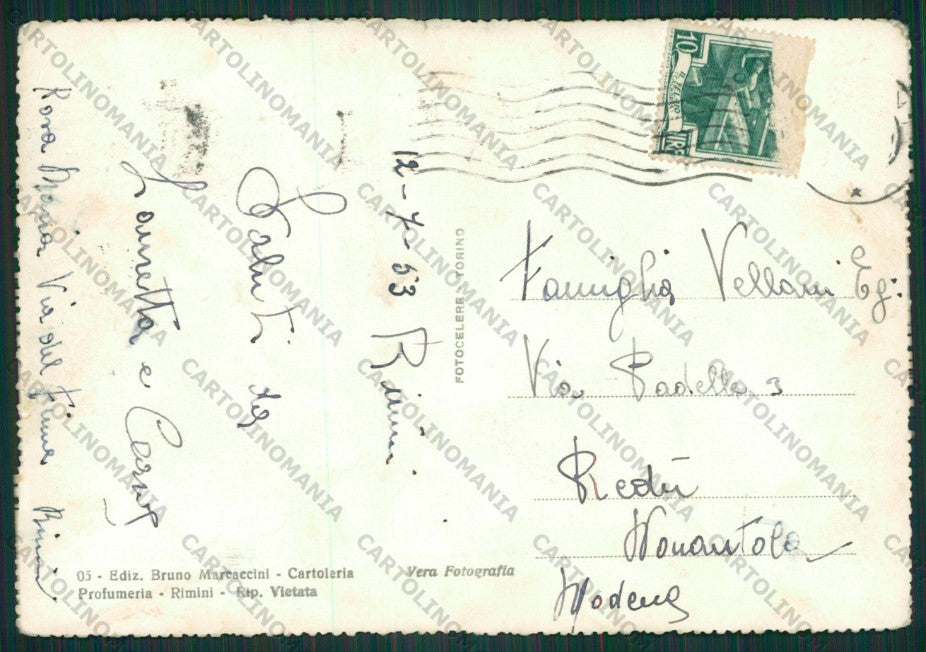 12-7-53 Rimini
Saluti da
Lauretta e
Rosa Maria Via del Fiume Rimini
FOTOCELERE - TORINO
10
LIRE
Famiglia Vellani Eg:
Via Padella 3
Redù
Nonantola
Modena
05 - Ediz. Bruno Marcaccini - Cartoleria
Profumeria - Rimini - Rip. Vietata
Vera Fotografia
CARTOLINOMANIA